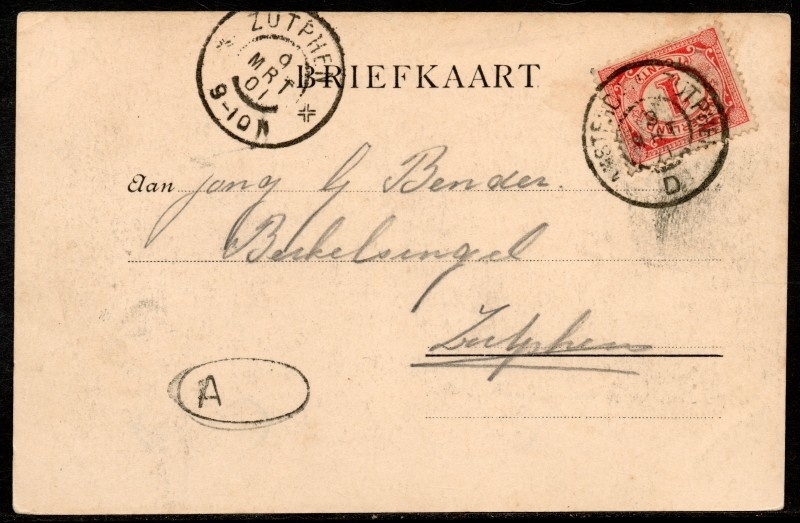 ZUTPHEN
9
MRT
01
9-10N
BRIEFKAART
1
ZUTPHEN
D
Aan jong G Bender.
Berkelsingel
Zutphen
A